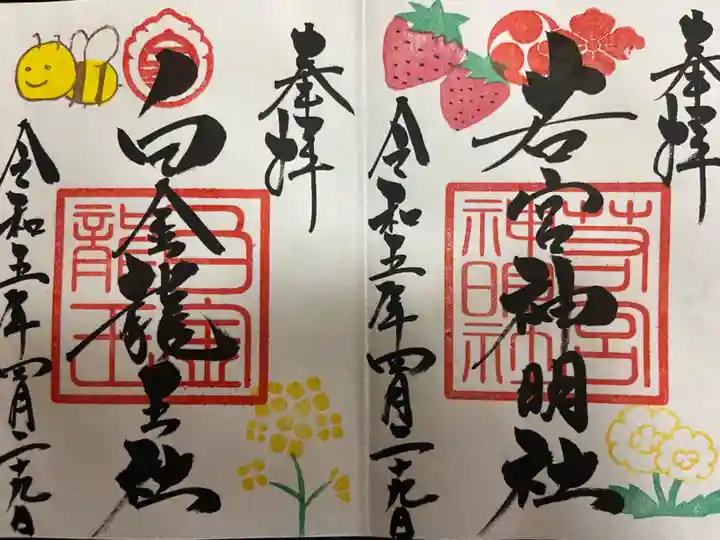 奉拝
若宮神明社
若宮
神明社
令和五年四月二十九日
奉拝
白金龍王社
白金
龍王
令和五年四月二十九日